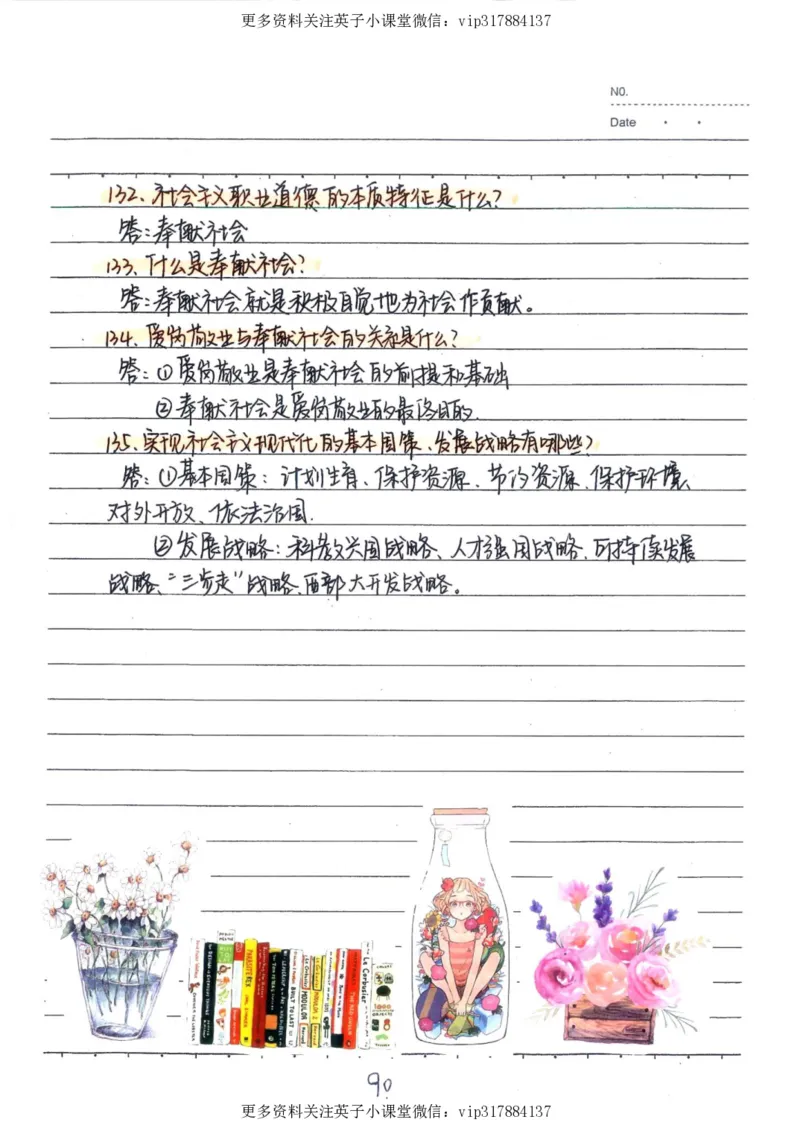 更多资料关注英子小课堂微信：vip317884137
NO.
Date
132、社会主义职业道德的本质特征是什么？
答：奉献社会
133、什么是奉献社会？
答：奉献社会就是积极自觉地为社会作贡献。
134、爱岗敬业与奉献社会的关系是什么？
答：①爱岗敬业是奉献社会的前提和基础
②奉献社会是爱岗敬业的最终目的.
135、实现社会主义现代化的基本国策、发展战略有哪些？
答：①基本国策：计划生育、保护资源、节约资源、保护环境、
对外开放、依法治国.
②发展战略：科教兴国战略、人才强国战略、可持续发展
战略、“三步走”战略、西部大开发战略。
PARASITE REX
BUILT TO LAST
MODULOR
MODULOR 2
Le Corbusier
90
更多资料关注英子小课堂微信：vip317884137